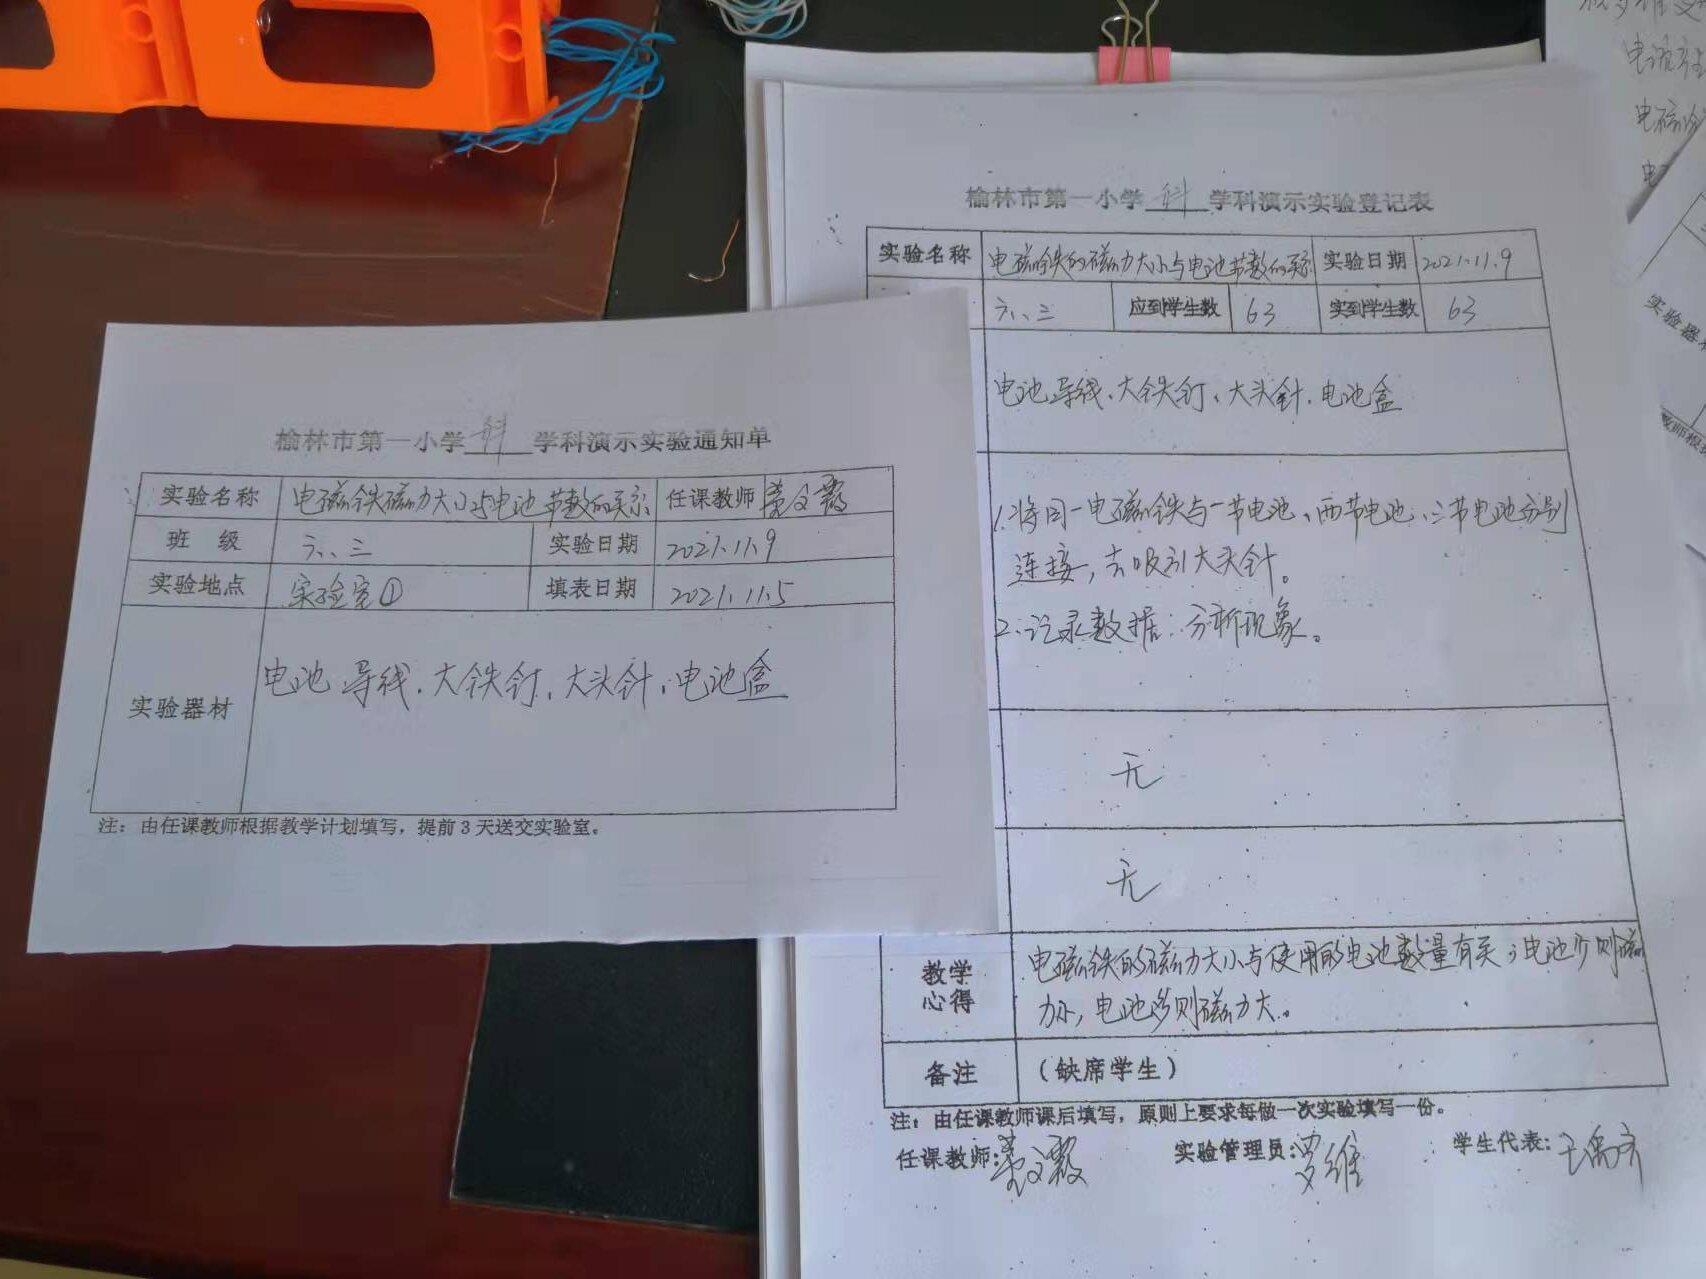 榆林市第一小学 科 学科演示实验通知单
实验名称 电磁铁磁力大小与电池节数的关系 任课教师
班 级 六、三 实验日期 2021.11.9
实验地点 实验室① 填表日期 2021.11.5
实验器材 电池 导线、大铁钉、大头针、电池盒
注：由任课教师根据教学计划填写，提前 3 天送交实验室。
榆林市第一小学 科 学科演示实验登记表
实验名称 电磁铁的磁力大小与电池节数的关系 实验日期 2021.11.9
六、三 应到学生数 63 实到学生数 63
电池 导线、大铁钉、大头针、电池盒
1.将同一电磁铁与一节电池、两节电池、三节电池分别
连接，去吸引大头针。
2.记录数据：分析现象。
无
无
教学心得 电磁铁的磁力大小与使用的电池数量有关；电池少则磁
力小，电池多则磁力大。
备注 （缺席学生）
注：由任课教师课后填写，原则上要求每做一次实验填写一份。
任课教师： 实验管理员：罗维 学生代表：
实验器